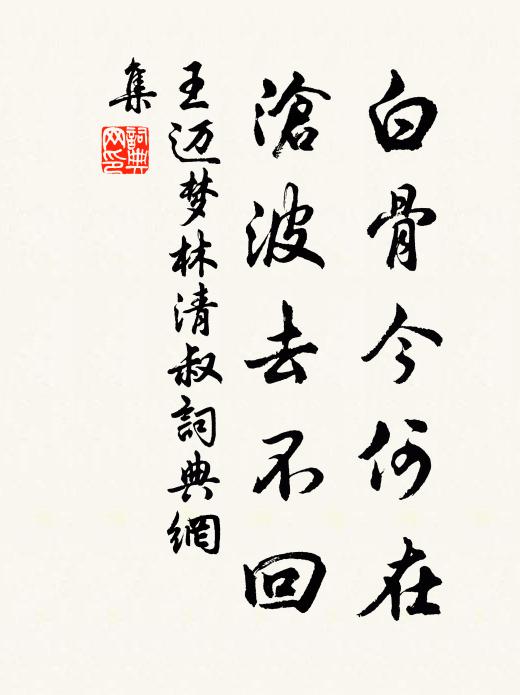 白骨今何在
滄波去不回
王迈梦林清叔詞典網
集
詞典
网印